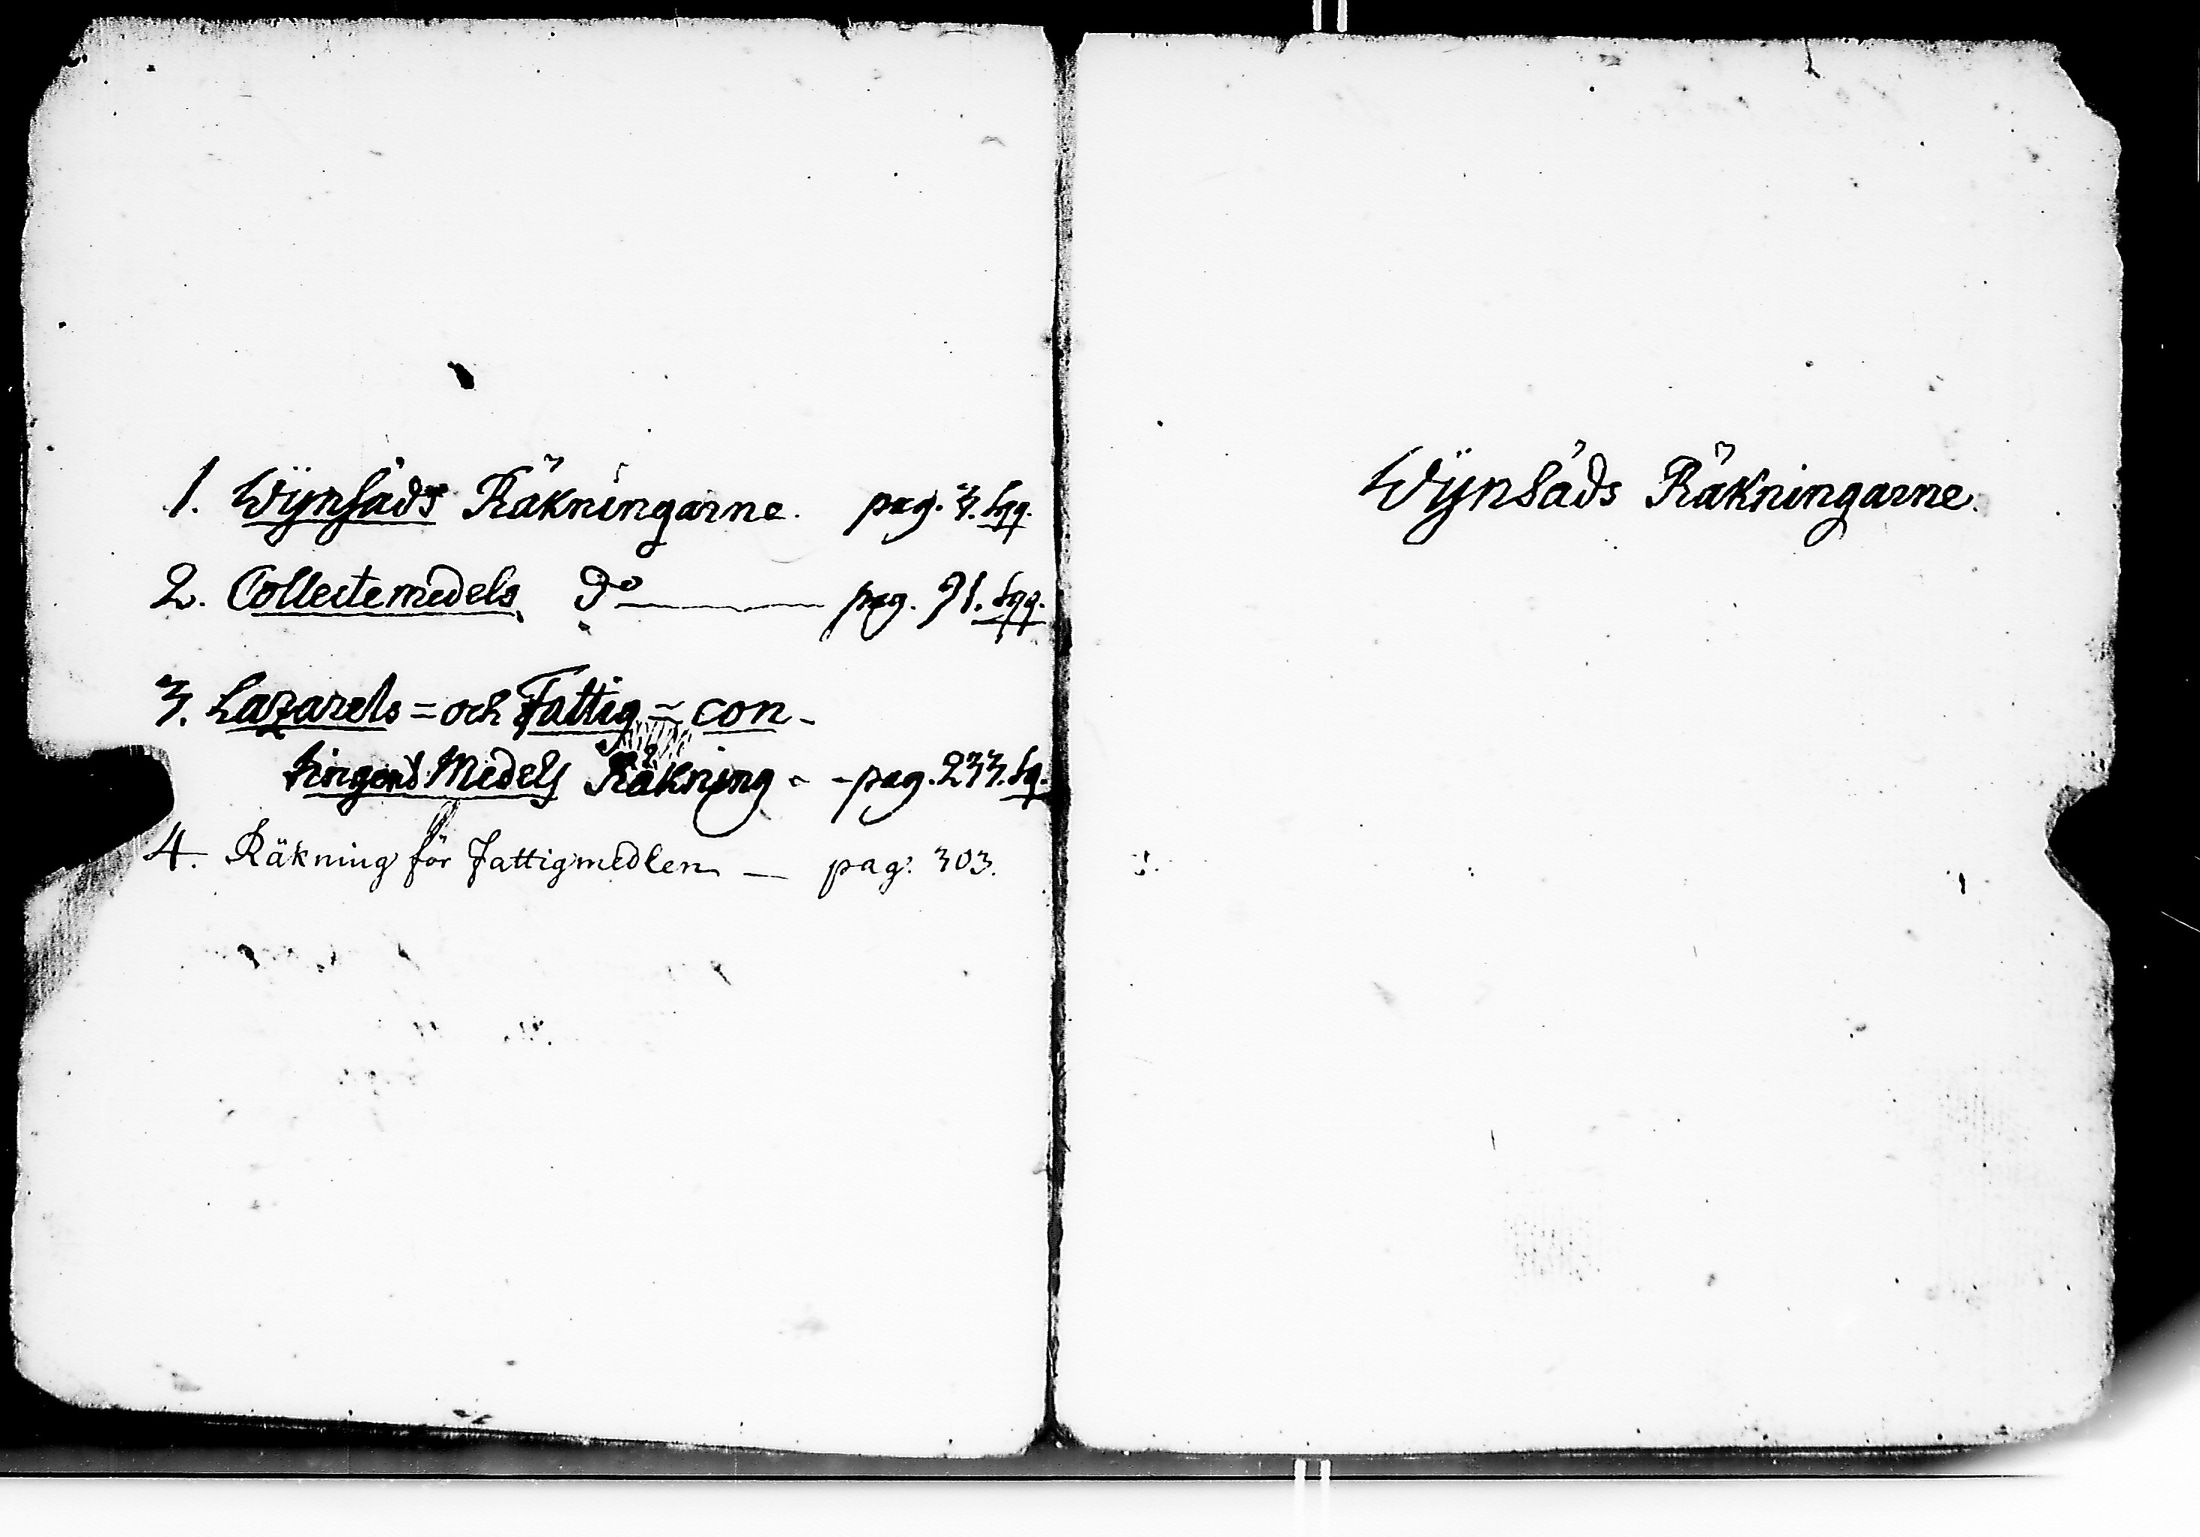 1. Wÿnsäds Räkningarne. pag. 3. sqq.
2. Collectemedels Do pag. 91. sqq.
3. Lazarets = och Fattig = con-
tingent Medels Räkning - - pag. 233. sq.
4. Räkning för Fattigmedlen — pag: 303.
Wÿnsäds Räkningarne.